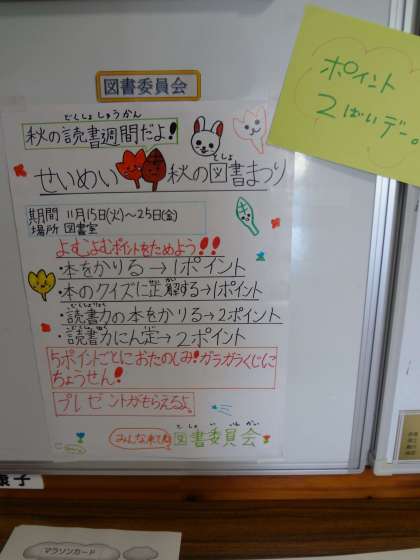 図書委員会
ポイント
2ばいデー。
どくしょしゅうかん
秋の読書週間だよ!
としょ
せいめい秋の図書まつり
期間 11月15日(火)~25日(金)
場所 図書室
よむよむポイントをためよう!!
・本をかりる→1ポイント
・本のクイズに正解する→1ポイント
・読書力の本をかりる→2ポイント
・読書力にん定→2ポイント
5ポイントごとにおたのしみ!ガラガラくじに
ちょうせん!
プレゼントがもらえるよ。
としょいいんかい
みんな来てね 図書委員会
康子
マラソンカード